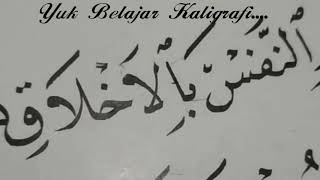 Yuk Belajar Kaligrafi....
النَّفْسِ بِالْأَخْلَاقِ